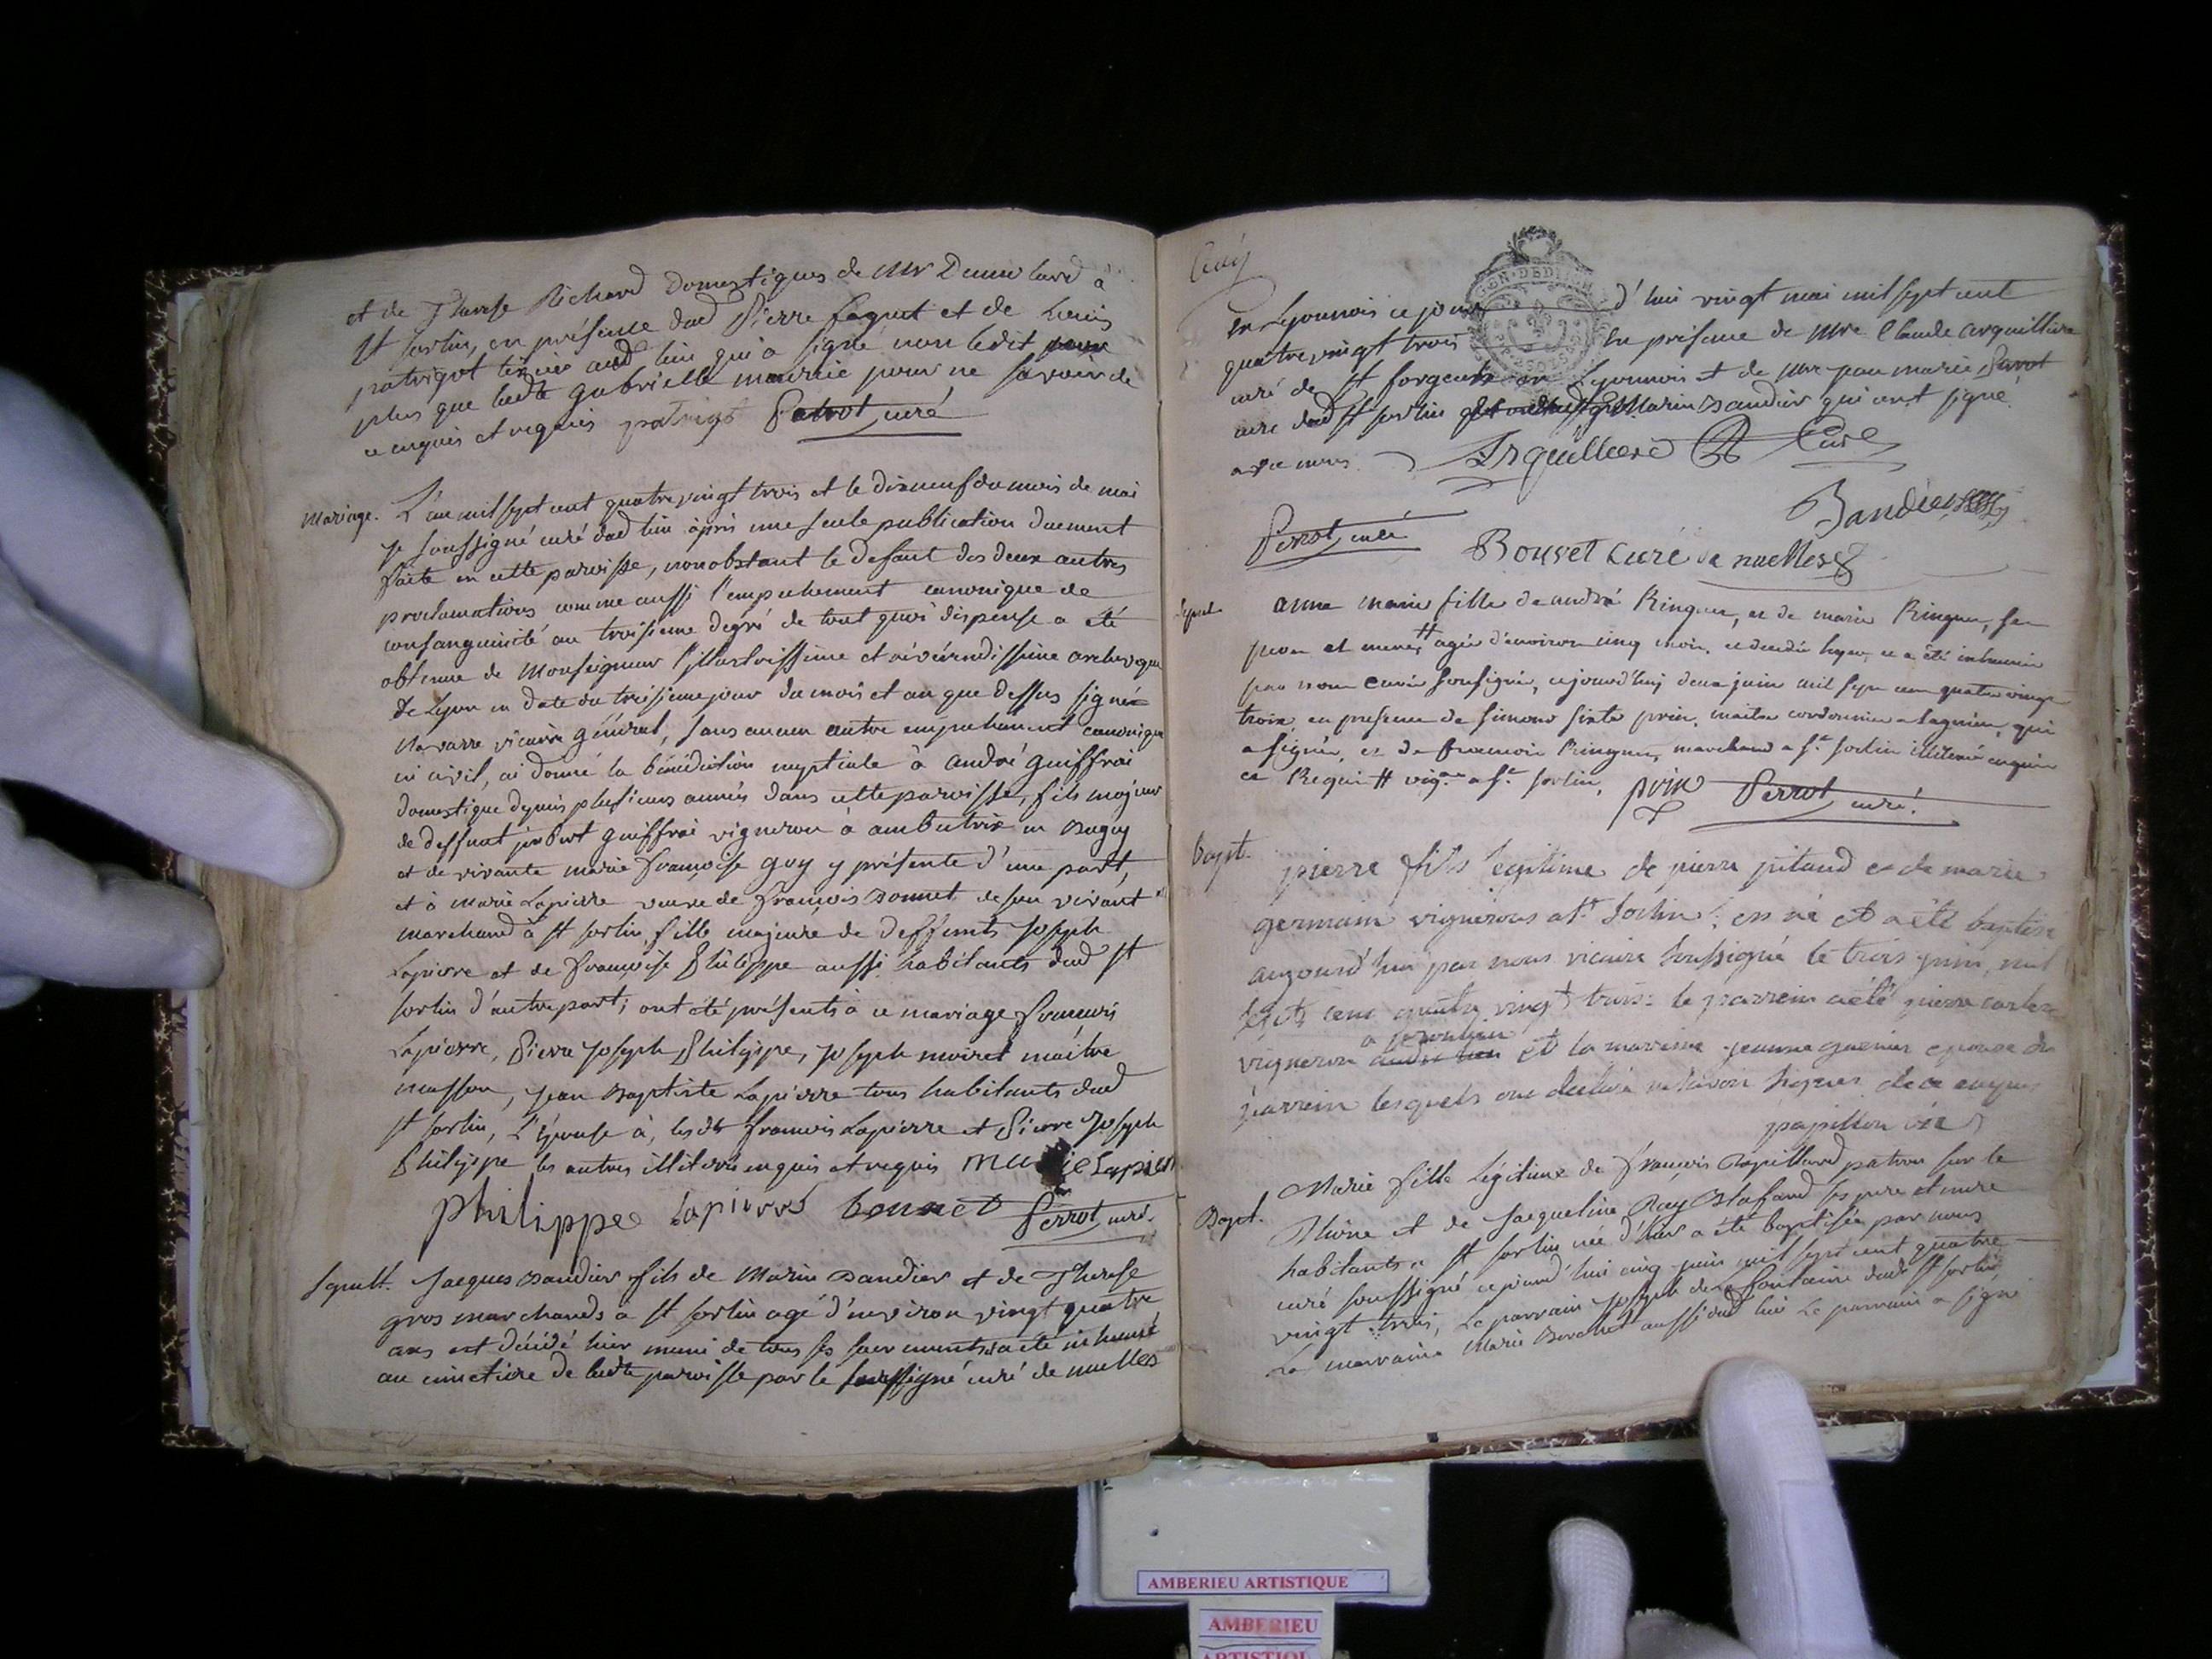 et de Therese Richard Domestiques de Mr Dumolard à
St Sorlin, en présence dud Pierre et de Louis
patrigot dud lieu qui a signé non ledit
plus que ladte gabrielle pour ne savoir de
ce enquis et requis patrigot Perrot, curé
Mariage. L'an mil sept cent quatre vingt trois et le dixneuf du mois de mai
je soussigné curé dud lieu après une seule publication duement
faite en cette paroisse, nonobstant le defaut des deux autres
proclamations comme aussi l'empechement canonique de
consanguinité au troisieme degré de tout quoi dispense a été
obtenue de Monseigneur l'illustrissime et révérendissime archeveque
de Lyon en date du treisieme jour du mois et an que dessus signée
Navarre vicaire général, sans aucun autre empechement canonique
ni civil, ai donné la bénédiction nuptiale à andré guiffrai
domestique depuis plusieurs années dans cette paroisse, fils majeur
de deffunt guiffrai vigneron à ambutrix en Bugey
et de vivante marie françoise goy y présente d'une part,
et à marie Lapierre veuve de françois Bonnet de son vivant
marchand à St Sorlin, fille majeure de deffunts Joseph
Lapierre et de françoise Philippe aussi habitants dud St
Sorlin d'autre part; ont été présents à ce mariage françois
Lapierre, Pierre Joseph Philippe, Joseph moiret maître
masson, Jean Baptiste Lapierre tous habitants dud
St Sorlin, L'épouse a, lesdts françois Lapierre et Pierre Joseph
Philippe les autres illiterés enquis et requis marie Lapierre
philippe Lapierre bonnet Perrot, curé.
Sepult. Jacques Bandier fils de Marin Bandier et de Therese
gros marchands a St Sorlin agé d'environ vingt quatre
ans est décédé hier muni de tous ses sacrements a été inhumé
au cimetiere de ladte paroisse par le soussigné curé de nuelles
en Lyonnois ce jour d'hui vingt mai mil sept cent
GEN·DE
quatre vingt trois en présence de Mre Claude arquilliere
curé de St forgeux en Lyonnois et de Mre marie Perrot
curé dud St Sorlin Marin Bandier qui ont signé
avec nous. Arquilliere Curé
Bandier
Perrot, curé Bouvet curé de nuelles
Sepult. anne marie fille de andré Ringuet, et de marie Ringuet, ses
pere et mere, # agée d'environ cinq mois, est decedée hyer, et a été inhumée
par nous curé soussigné, cejourd'huy deux juin mil sept cent quatre vingt
trois, en presence de simond, maitre cordonnier a Lagnieu, qui
a signé, et de francois Ringuet, marchand a St Sorlin illiteré enquis
et Requi # vigon a St Sorlin. Perrot, curé.
bapt. pierre fils legitime de pierre pitaud et de marie
germain vignerons a St Sorlin est né et a été baptisé
aujourd'hui par nous vicaire soussigné le trois juin mil
sept cent quatre vingt trois le parrein a été pierre
vigneron et la marreine jeanne epouse du
parrein lesquels ont declaré ne savoir signer de ce enquis
papillon vic
Bapt. Marie fille légitime de françois Papillard patron sur le
Rhône et de Jacqueline Ray ses pere et mere
habitants a St Sorlin née d'hier a été baptisée par nous
curé soussigné cejourd'hui cinq juin mil sept cent quatre
vingt trois, Le parrain Joseph de la fontaine dud St Sorlin
La marraine Marie aussi dud lieu Le parrain a signé
AMBERIEU ARTISTIQUE
AMBERIEU
ARTISTIQUE